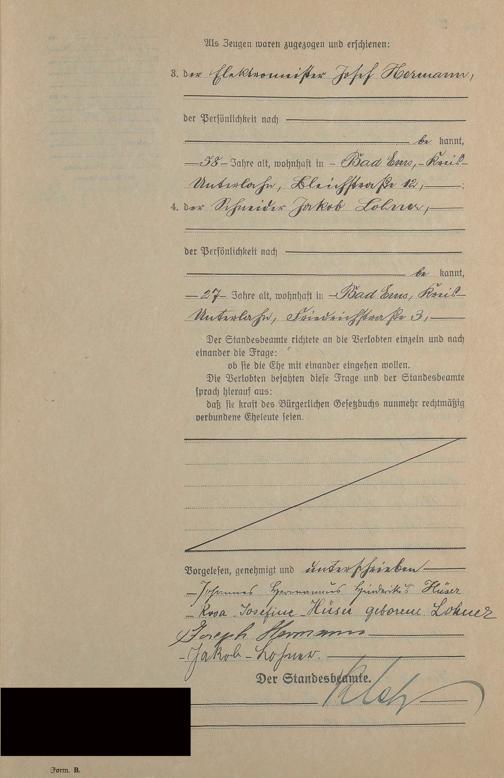 Als Zeugen waren zugezogen und erschienen:
3. der Elektromeister Josef Hermann,
der Persönlichkeit nach
be kannt,
58 Jahre alt, wohnhaft in Bad Ems, Kreis
Unterlahn, Bleichstraße 12,
4. der Schneider Jakob Lohner,
der Persönlichkeit nach
be kannt,
27 Jahre alt, wohnhaft in Bad Ems, Kreis
Unterlahn, Friedrichstraße 3,
Der Standesbeamte richtete an die Verlobten einzeln und nach
einander die Frage:
ob sie die Ehe mit einander eingehen wollen.
Die Verlobten bejahten diese Frage und der Standesbeamte
sprach hierauf aus:
daß sie kraft des Bürgerlichen Gesetzbuchs nunmehr rechtmäßig
verbundene Eheleute seien.
Vorgelesen, genehmigt und unterschrieben
Johannes Hermannus Hüser
Rosa Josefine Hüser geborene Lohner
Joseph Hermann
Jakob Lohner.
Der Standesbeamte.
Form. B.